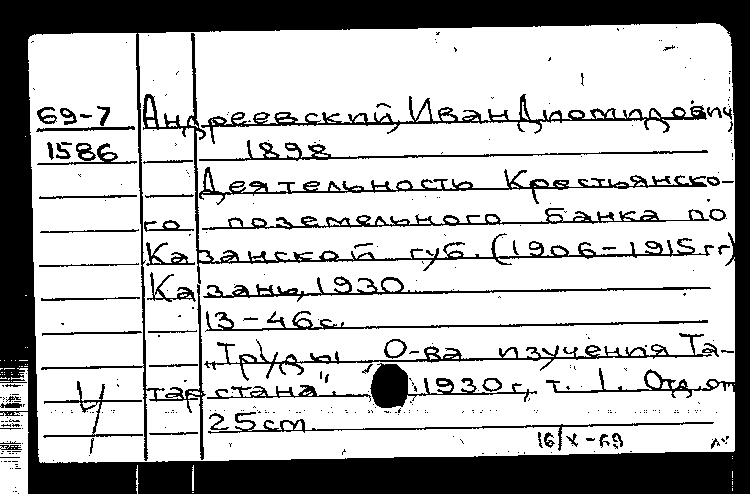 69-7 Андреевский, Иван Диомидович
1586 1898
Деятельность Крестьянско-
го поземельного банка по
Казанской губ. (1906-1915 гг)
Казань, 1930.
13-46 с.
„Труды О-ва изучения Та-
тарстана". 1930 г, т. 1. Отд. от
25 cm.
16/X-69